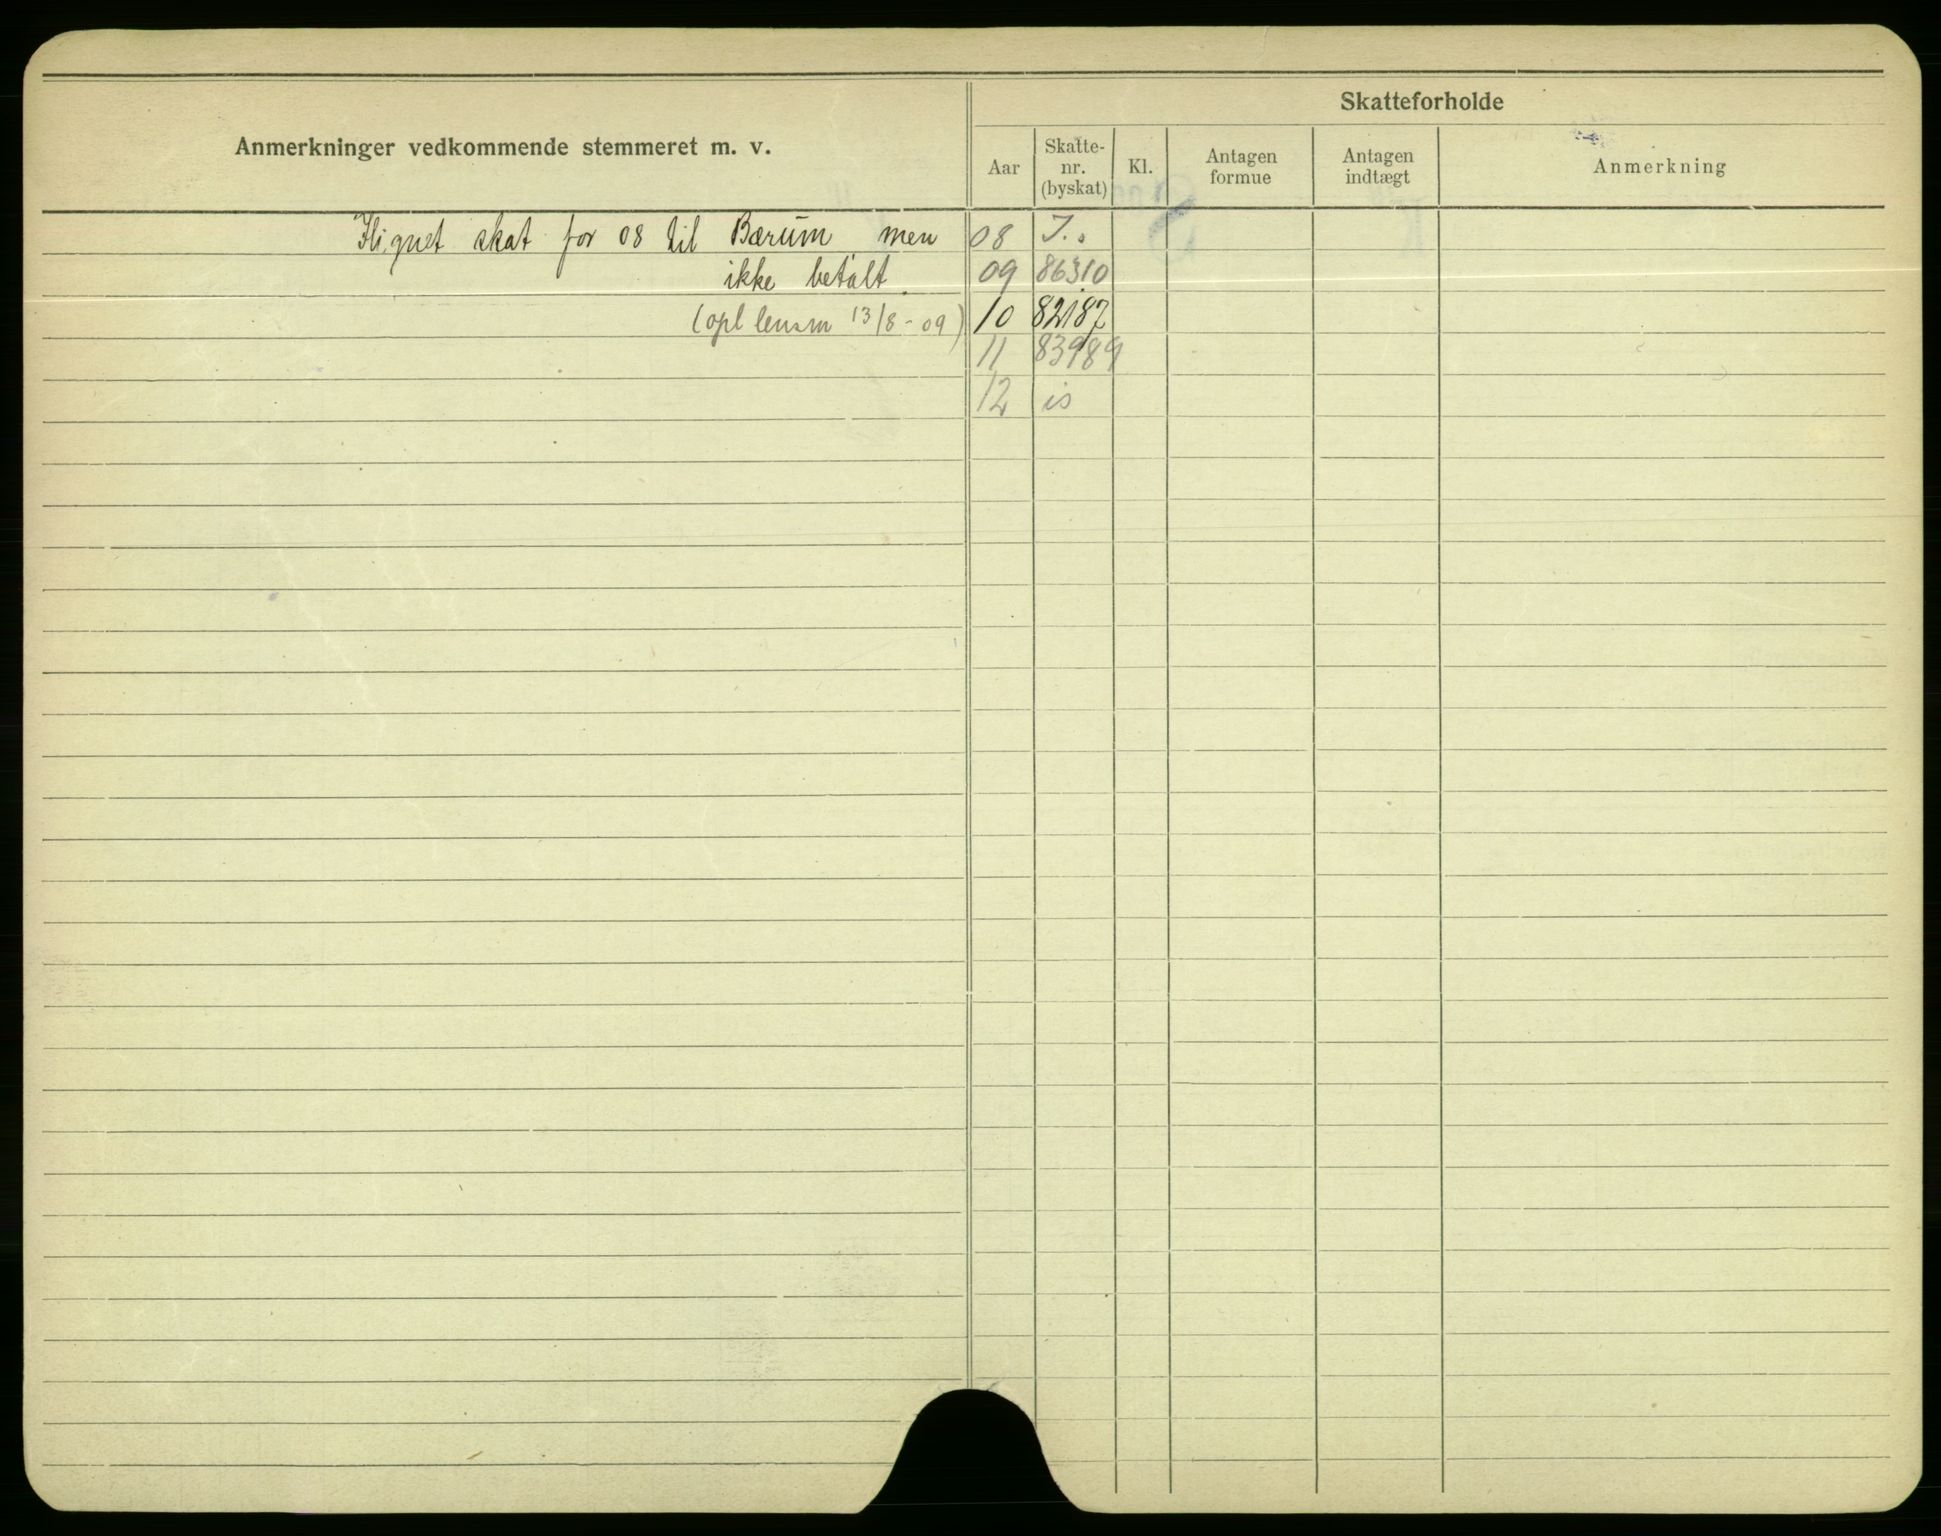 Skatteforholde
Anmerkninger vedkommende stemmeret m. v.
Aar
Skatte-
nr.
(byskat)
Kl.
Antagen
formue
Antagen
indtægt
Anmerkning
Ilignet skat for 08 til Bærum men
ikke betalt.
(opl lensm 13/8-09)
08 I..
09 86310
10 82187
11 83989
12 is